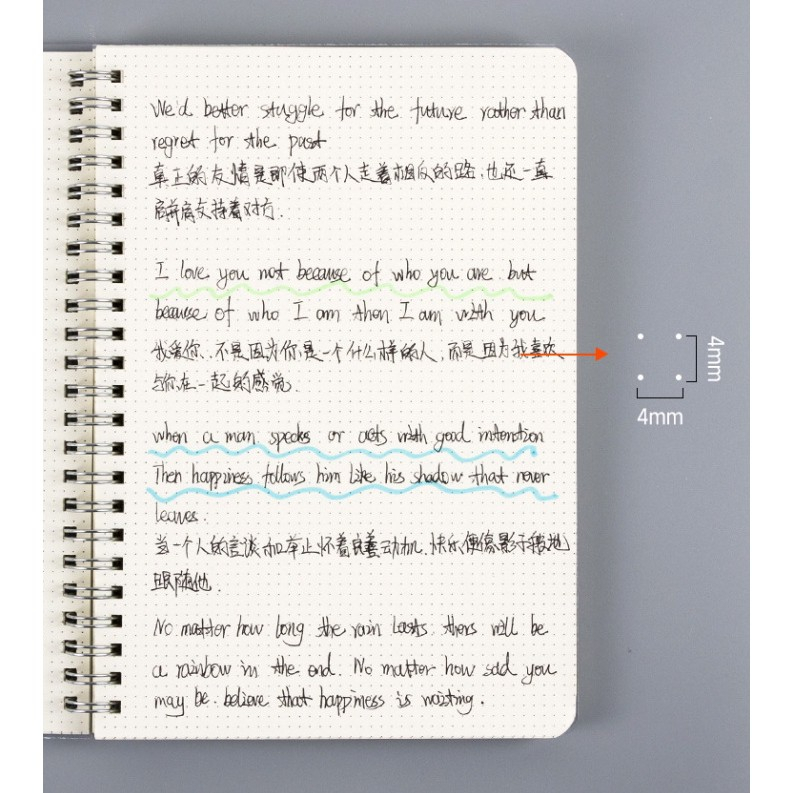 We'd better stuggle for the future rather than
regret for the past
真正的友情是那使两个人走着相反的路,也还一直
肩并肩支持着对方.
I love you not because of who you are but
because of who I am then I am with you
我爱你,不是因为你是一个什么样的人,而是因为我喜欢
与你在一起的感觉.
when a man speaks or acts with good intention
Then happiness follows him like his shadow that never
leaves.
当一个人的言谈和举止怀着良善动机.快乐便像影子跟地
跟随他.
No matter how long the rain lasts thers will be
a rainbow in the end. No matter how sad you
may be. believe that happiness is waiting.
4mm
4mm